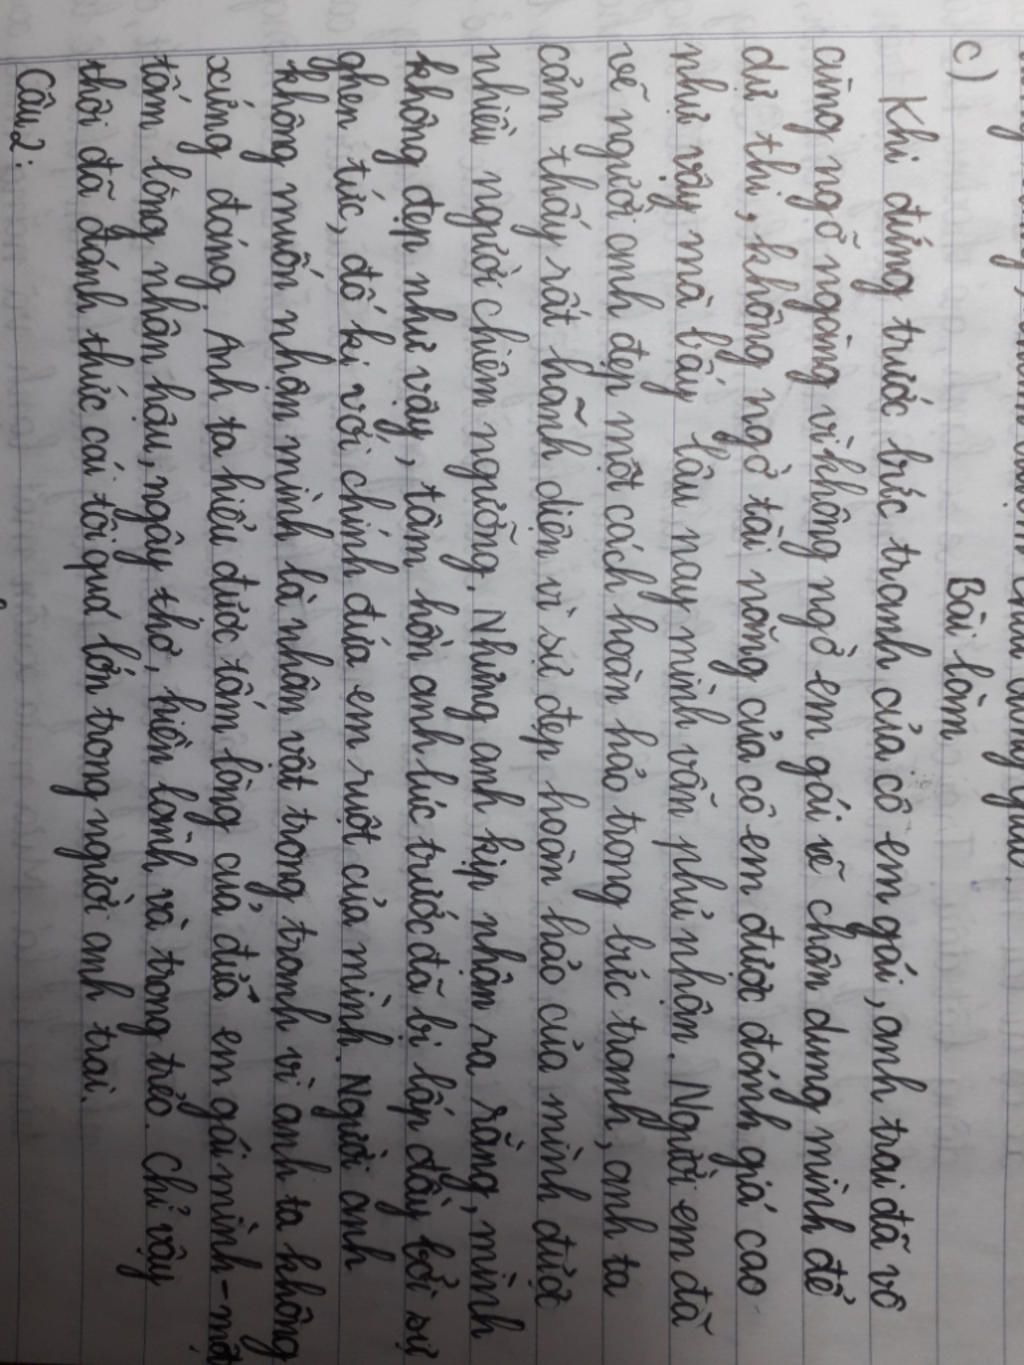 c) Bài làm
Khi đứng trước bức tranh của cô em gái, anh trai đã vô
cùng ngỡ ngàng vì không ngờ em gái vẽ chân dung mình để
dự thi, không ngờ tài năng của cô em được đánh giá cao
như vậy mà bấy lâu nay mình vẫn phủ nhận. Người em đã
vẽ người anh đẹp một cách hoàn hảo trong bức tranh, anh ta
cảm thấy rất hãnh diện vì sự đẹp hoàn hảo của mình được
nhiều người chiêm ngưỡng. Nhưng anh kịp nhận ra rằng, mình
không đẹp như vậy, tâm hồn anh lúc trước đã bị lấp đầy bởi sự
ghen tức, đố kị với chính đứa em ruột của mình. Người anh
không muốn nhận mình là nhân vật trong tranh vì anh ta không
xứng đáng. Anh ta hiểu được tấm lòng của đứa em gái mình - một
tấm lòng nhân hậu, ngây thơ, hiền lành và trong trẻo. Chỉ vậy
thôi đã đánh thức cái tôi quá lớn trong người anh trai.
Câu 2: